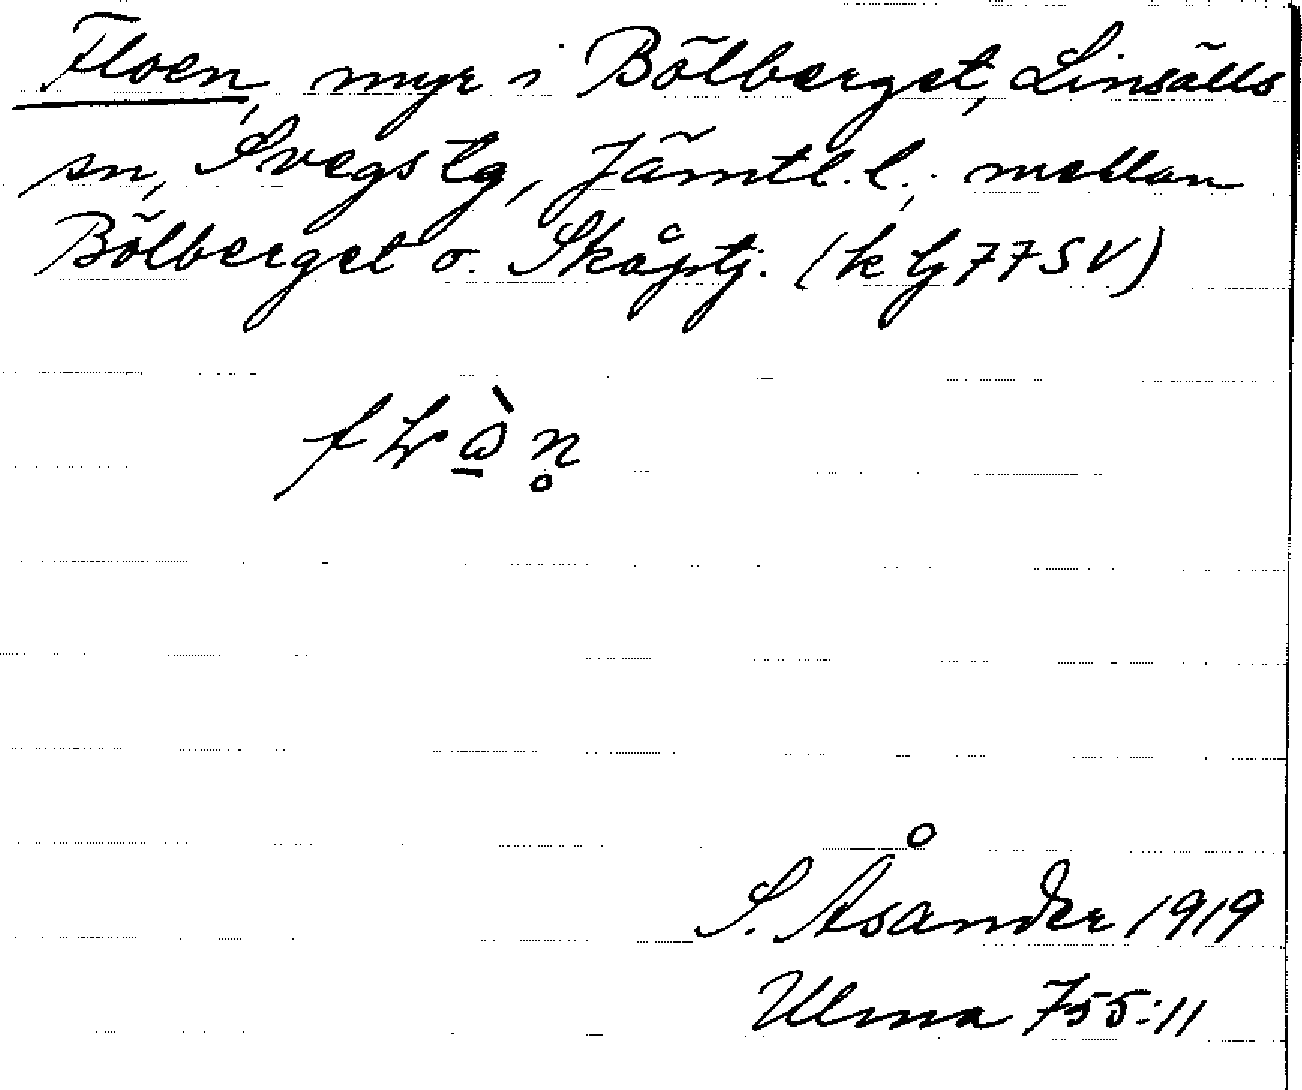 Floen, myr i Bölberget, Linsälls
sn, Svegs tg, Jämtl. l.; mellan
Bölberget o. Skåptj. (k lj 77 SV)
S. Åsander 1919
Ulma 755:11